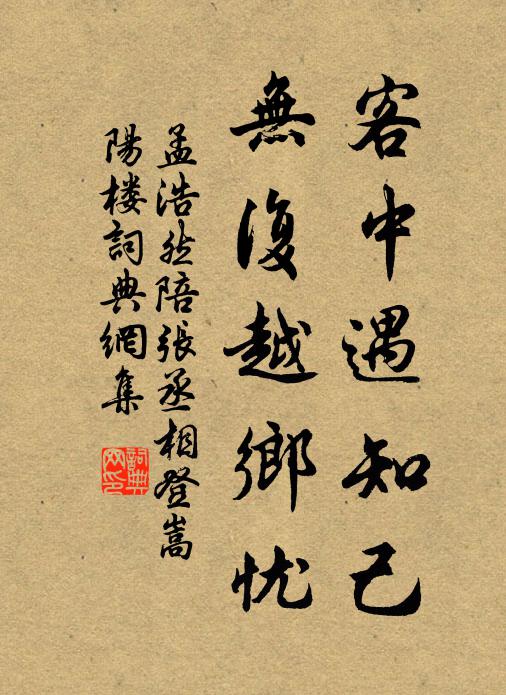 客中遇知己
無復越鄉忧
孟浩然陪張丞相登嵩
陽楼詞典網集
詞典
网印